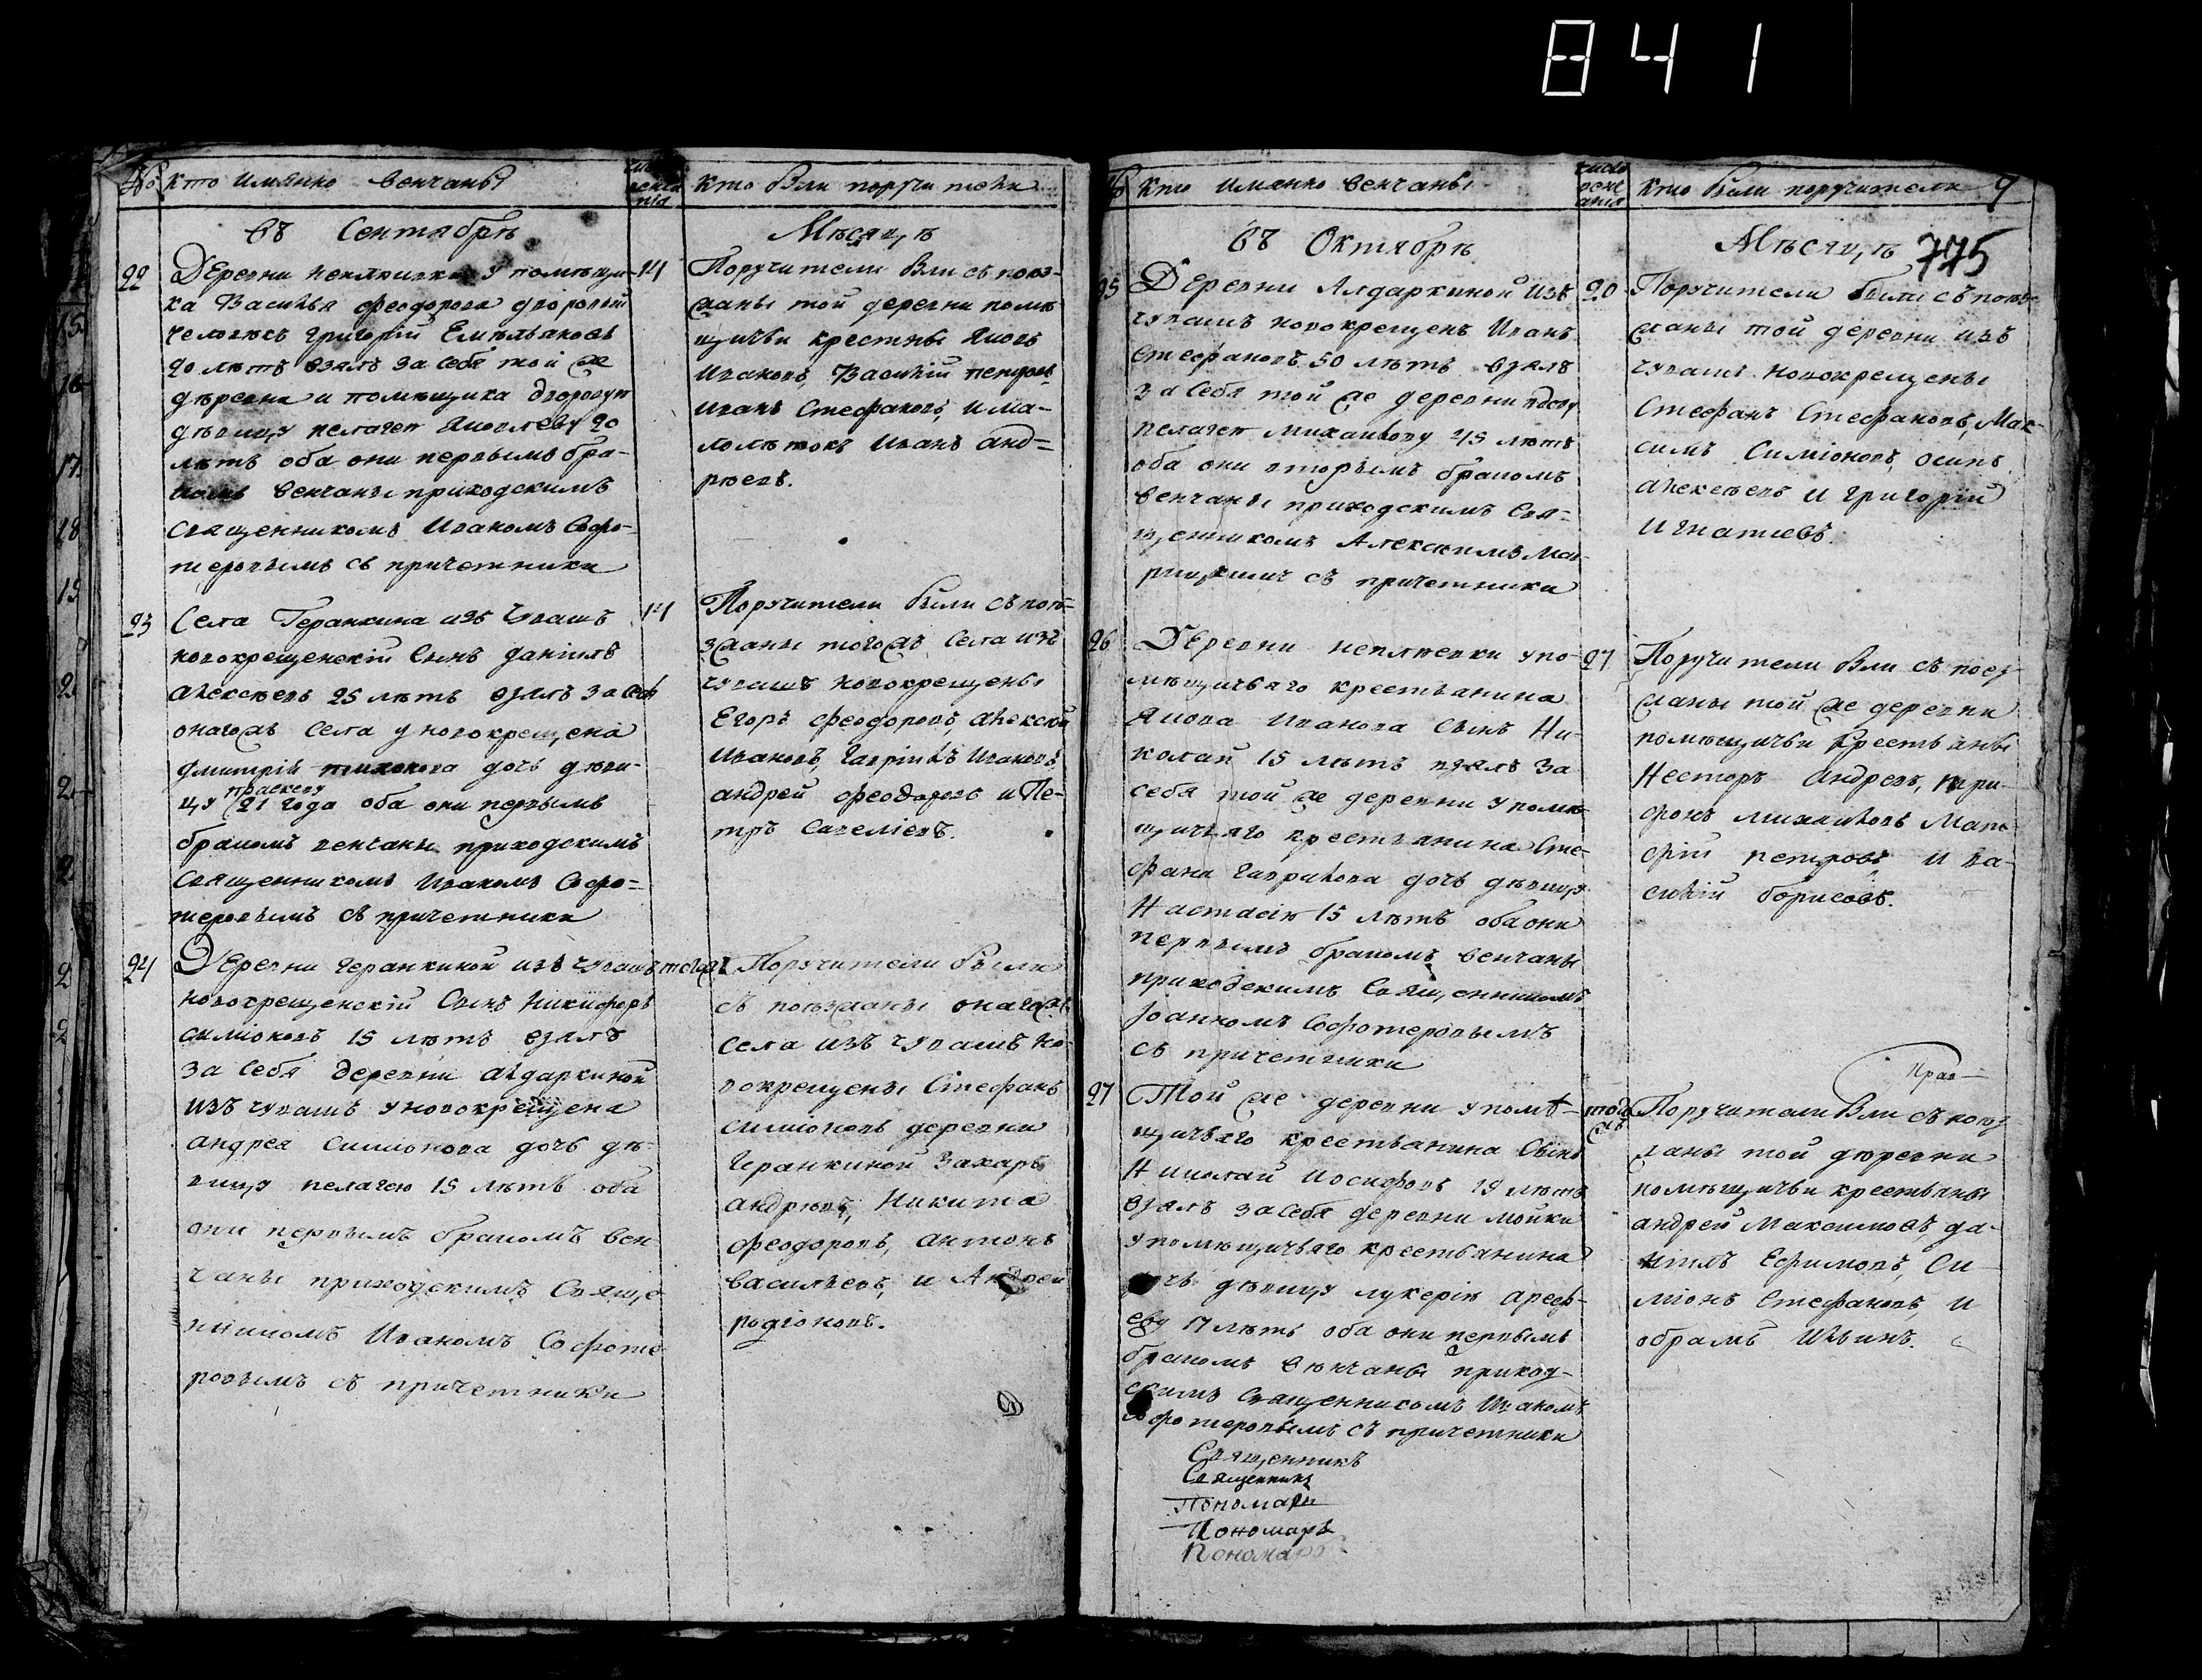 841
№ кто имянно венчаны
кто были поручители
въ Сентябрѣ Мѣсяцѣ
22
Деревни Неклюевки у помѣщи-
ка Василья Феодорова дворовой
человекъ Григорій Емельяновъ
20 лѣтъ взялъ за себя той же
деревни и помѣщика дворовую
дѣвицу Пелагею Яковлеву 20
лѣтъ оба они первымъ бра-
комъ венчаны приходскимъ
священникомъ Иваномъ Софо-
теровымъ съ причетники
14
Поручители были съ поѣз-
жаны той деревни помѣ
щичьи крестьяны Яковъ
Ивановъ, Василій Петровъ,
Иванъ Стефановъ, и ма-
лолѣтокъ Иванъ Анд-
рѣевъ.
23
Села Геранкина изъ чувашъ
новокрещенскій сынъ Даніилъ
Алексѣевъ 25 лѣтъ взялъ за себя
онагожъ села у новокрещена
Дмитрія Тихонова дочь дѣви-
прасковю
цу 21 года оба они первымъ
бракомъ венчаны приходскимъ
священникомъ Иваномъ Софо-
теровымъ съ причетники
14
Поручители были съ поѣ-
зжаны тогожъ села изъ
чувашъ новокрещены
Егоръ Феодоровъ, Алексѣй
Ивановъ, Гаврилъ Ивановъ,
Андрей Феодоровъ и Пе-
тръ Савеліевъ.
24
Деревни Геранкиной изъ чувашъ
новокрещенскій сынъ Никифоръ
Симіоновъ 15 лѣтъ взялъ
за себя деревни Алдаркиной
изъ чувашъ у новокрещена
Андрея Симионова дочь дѣ-
вицу Пелагею 15 лѣтъ оба
они первымъ бракомъ вен
чаны приходскимъ Священ
никомъ Иваномъ Софоте
ровымъ съ причетники
тогожъ
Поручители были
съ поѣзжаны онагожъ
села изъ чувашъ но-
вокрещены Стефанъ
Симионовъ деревни
Геранкиной Захаръ
Андрѣевъ, Никита
Феодоровъ, Антонъ
Васильевъ, и Андрей
Родіоновъ.
№ кто имянно венчаны
число венчанія
кто были поручители 9
въ Октябрѣ Мѣсяцѣ 775
25
Деревни Алдаркиной изъ
чувашъ новокрещенъ Иванъ
Стефановъ 50 лѣтъ взялъ
за себя той же деревни вдову
Пелагею Михайлову 45 лѣтъ
оба они вторымъ бракомъ
венчаны приходскимъ Свя-
щенникомъ Алексѣимъ
съ причетники
20
Поручители были съ поѣз-
жаны той деревни изъ
чувашъ новокрещены
Стефанъ Стефановъ, Мак-
симъ Симіоновъ, Осипъ
Алексѣевъ и Григорій
Игнатиевъ.
26
Деревни Неклюевки у по-
мѣщичьяго крестьанина
Якова Иванова сынъ Ни-
колай 15 лѣтъ взялъ за
себя той же деревни у помѣ
щичьяго крестьянина Сте-
фана Гаврилова дочь дѣвицу
Настасію 15 лѣтъ оба они
первымъ бракомъ венчаны
приходскимъ Священникомъ
Іоанномъ Софотеровымъ
съ причетники
27
Поручители были съ поез-
жаны той же деревни
помѣщичьи крестьаны
Несторъ Андрѣевъ, Три-
фонъ Михайловъ
Петровъ и Ва-
силій Борисовъ.
27
Той же деревни у помѣ-
щичьяго крестьанина сынъ
Николай Иосифовъ 19 лѣтъ
взялъ за себя деревни Мойки
у помѣщичьяго крестьанина
дочь дѣвицу Лукерію Ареф-
еву 17 лѣтъ оба они первымъ
бракомъ венчаны приход-
скимъ Священникомъ Иваномъ
Софотеровымъ съ причетники
того жъ
Прав
Поручители были съ поѣз
жаны той деревни
помѣщичьи крестьаны
Андрей Максимовъ, Да-
ніилъ Ефимовъ, Си
міонъ Стефановъ, и
Обрамъ Ильинъ.
Священникъ
Священникъ
Пономарь
Пономарь
Пономарь